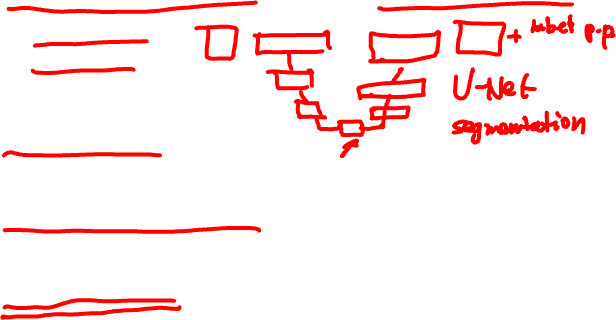 + label p.p
U-Net
segmentation